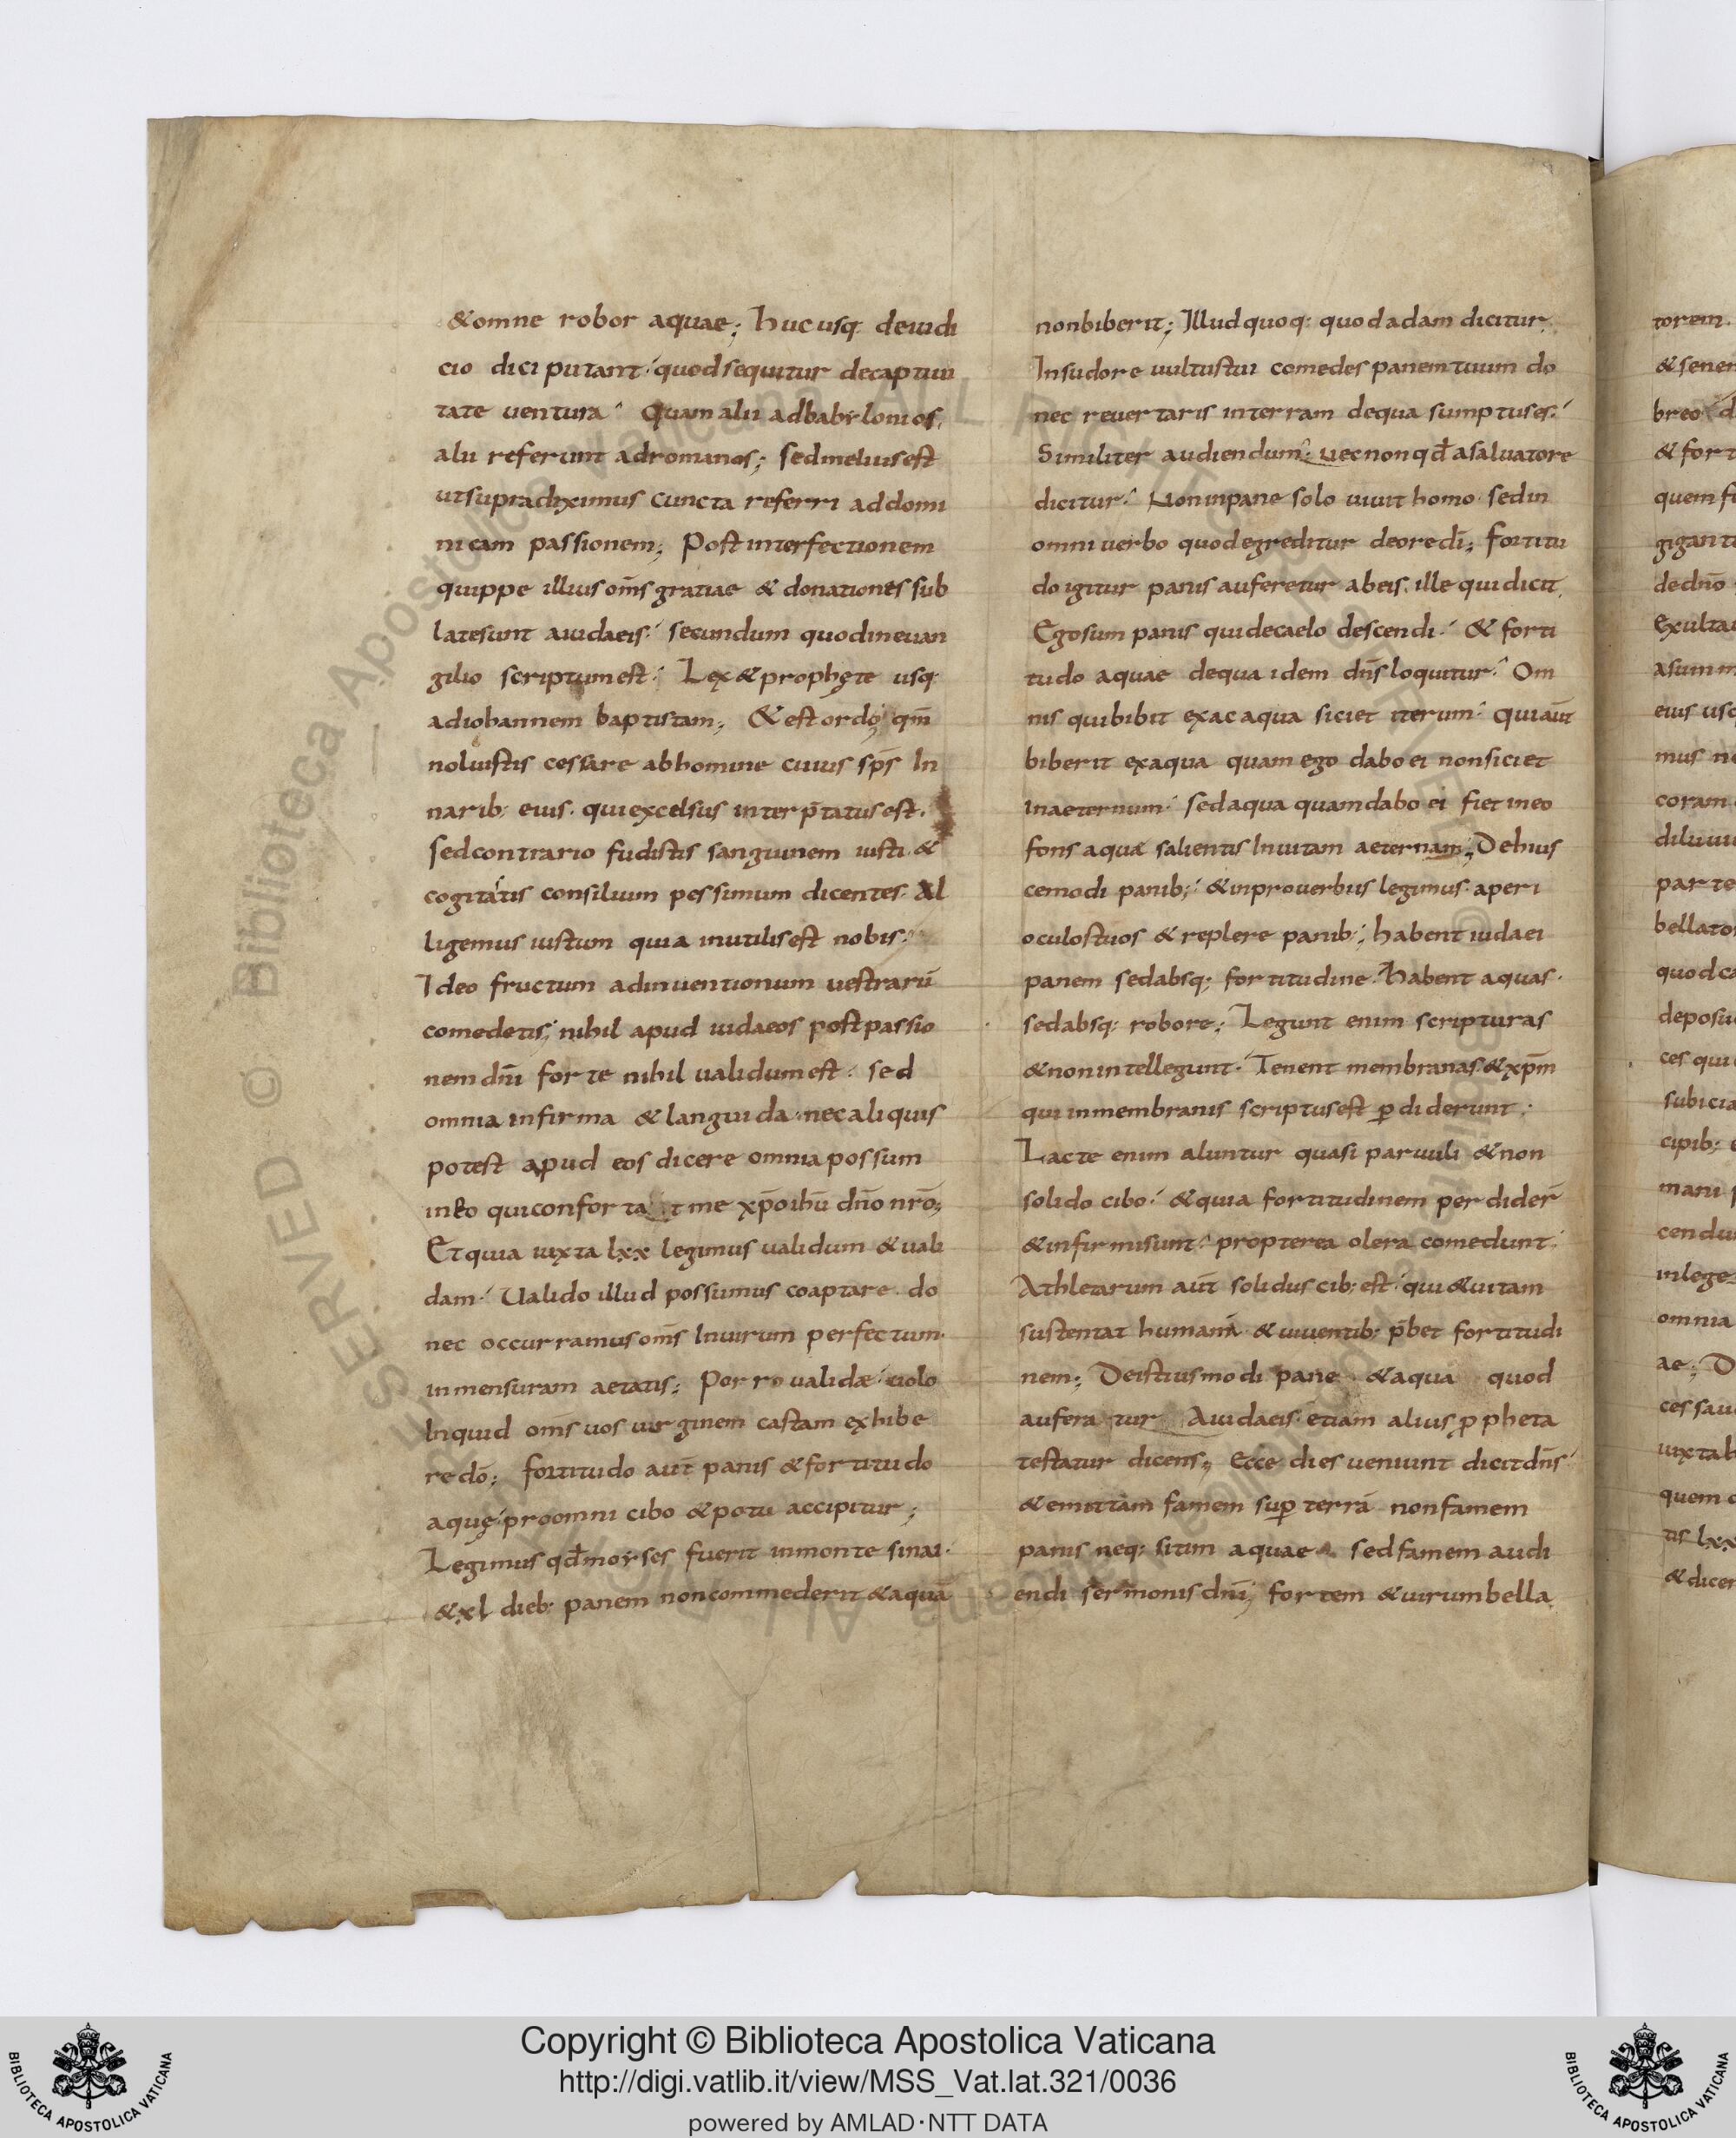 &omne robor aquae; hucusq; deiudi
cio dici putant; quod sequitur decaptiui
tate uentura; Quam alii adbabilonios,
alii referunt adromanos; Sed melius est
utsupradiximus cuncta referri addomi
nicam passionem; Post interfectionem
quippe illius om̄s gratiae & donationes sub
latesunt aiudaeis; secundum quodineuan
gelio scriptum est; Lex & prophęte usq;
adiohannem baptistam; & est ordo; qm̄
noluistis cessare abhomine cuius sp̄s In
narib; eius. quiexcelsus interp̄tatus est.
Sed contrario fudistis sanguinem iusti &
cogitatis consilium pessimum dicentes. Al
ligemus iustum quia inutilis est nobis;
Ideo fructum adinuentionum uestrarū
comedetis; nihil apud iudaeos postpassio
nem dn̄i forte nihil ualidum est; sed
omnia infirma & languida. nec aliquis
potest apud eos dicere omnia possum
in eo quiconfortat me xp̄o ihū dn̄o nrō;
Et quia iuxta lxx legimus ualidum & uali
dam; Ualido illud possumus coaptare. do
nec occurramus om̄s Inuirum perfectum.
inmensuram aetatis; Porro ualidæ; uolo
Inquid om̄s uos uirginem castam exhibe
re dō; fortitudo aut̄ panis & fortitudo
aquę; proomni cibo & potu accipitur;
Legimus qd̄ moyses fuerit inmonte sinai.
&xl dieb; panem noncommederit &aquā
nonbiberit; Illud quoq; quod adam dicitur,
Insudore uultustui comedes panem tuum do
nec reuertaris interram dequa sumptus es;
Similiter audiendum; necnon qd̄ asaluatore
dicitur; Non inpane solo uiuit homo. sed in
omni uerbo quod egreditur deore dī; fortitu
do igitur panis auferetur abeis. ille qui dicit,
Ego sum panis qui decaelo descendi; & forti
tudo aquae dequa idem dn̄s loquitur; Om
nis qui bibit exac aqua siciet iterum; qui aūt
biberit exaqua quam ego dabo ei nonsiciet
inaeternum; sed aqua quam dabo ei fiet ineo
fons aquæ salientis Inuitam aeternam; Dehius
cemodi panib;; & inprouerbiis legimus. aperi
oculostuos & replere panib;; habent iudaei
panem sed absq; fortitudine. Habent aquas.
sed absq; robore; Legunt enim scripturas
&non intellegunt. Tenent membranas & xp̄m
qui inmembranis scriptus est p̱diderunt;
Lacte enim aluntur quasi paruuli & non
solido cibo; & quia fortitudinem perdider̄
&infirmisunt; propterea olera comedunt;
Athletarum aūt solidus cib; est; qui & uitam
sustentat humanā & uiuentib; p̄bet fortitudi
nem; Deistiusmodi pane & aqua quod
auferatur Aiudaeis. etiam alius p̱pheta
testatur dicens; Ecce dies ueniunt dicit dn̄s
&emittam famem sup̱ terrā non famem
panis neq; sitim aquae sed famem audi
endi sermonis dn̄i; fortem & uirum bella
torem.
breo
& fort
dedn̄o
coram
par te
bellato
mani
omnia
quem
Copyright © Biblioteca Apostolica Vaticana
http://digi.vatlib.it/view/MSS_Vat.lat.321/0036
powered by AMLAD·NTT DATA
BIBLIOTECA APOSTOLICA VATICANA
BIBLIOTECA APOSTOLICA VATICANA